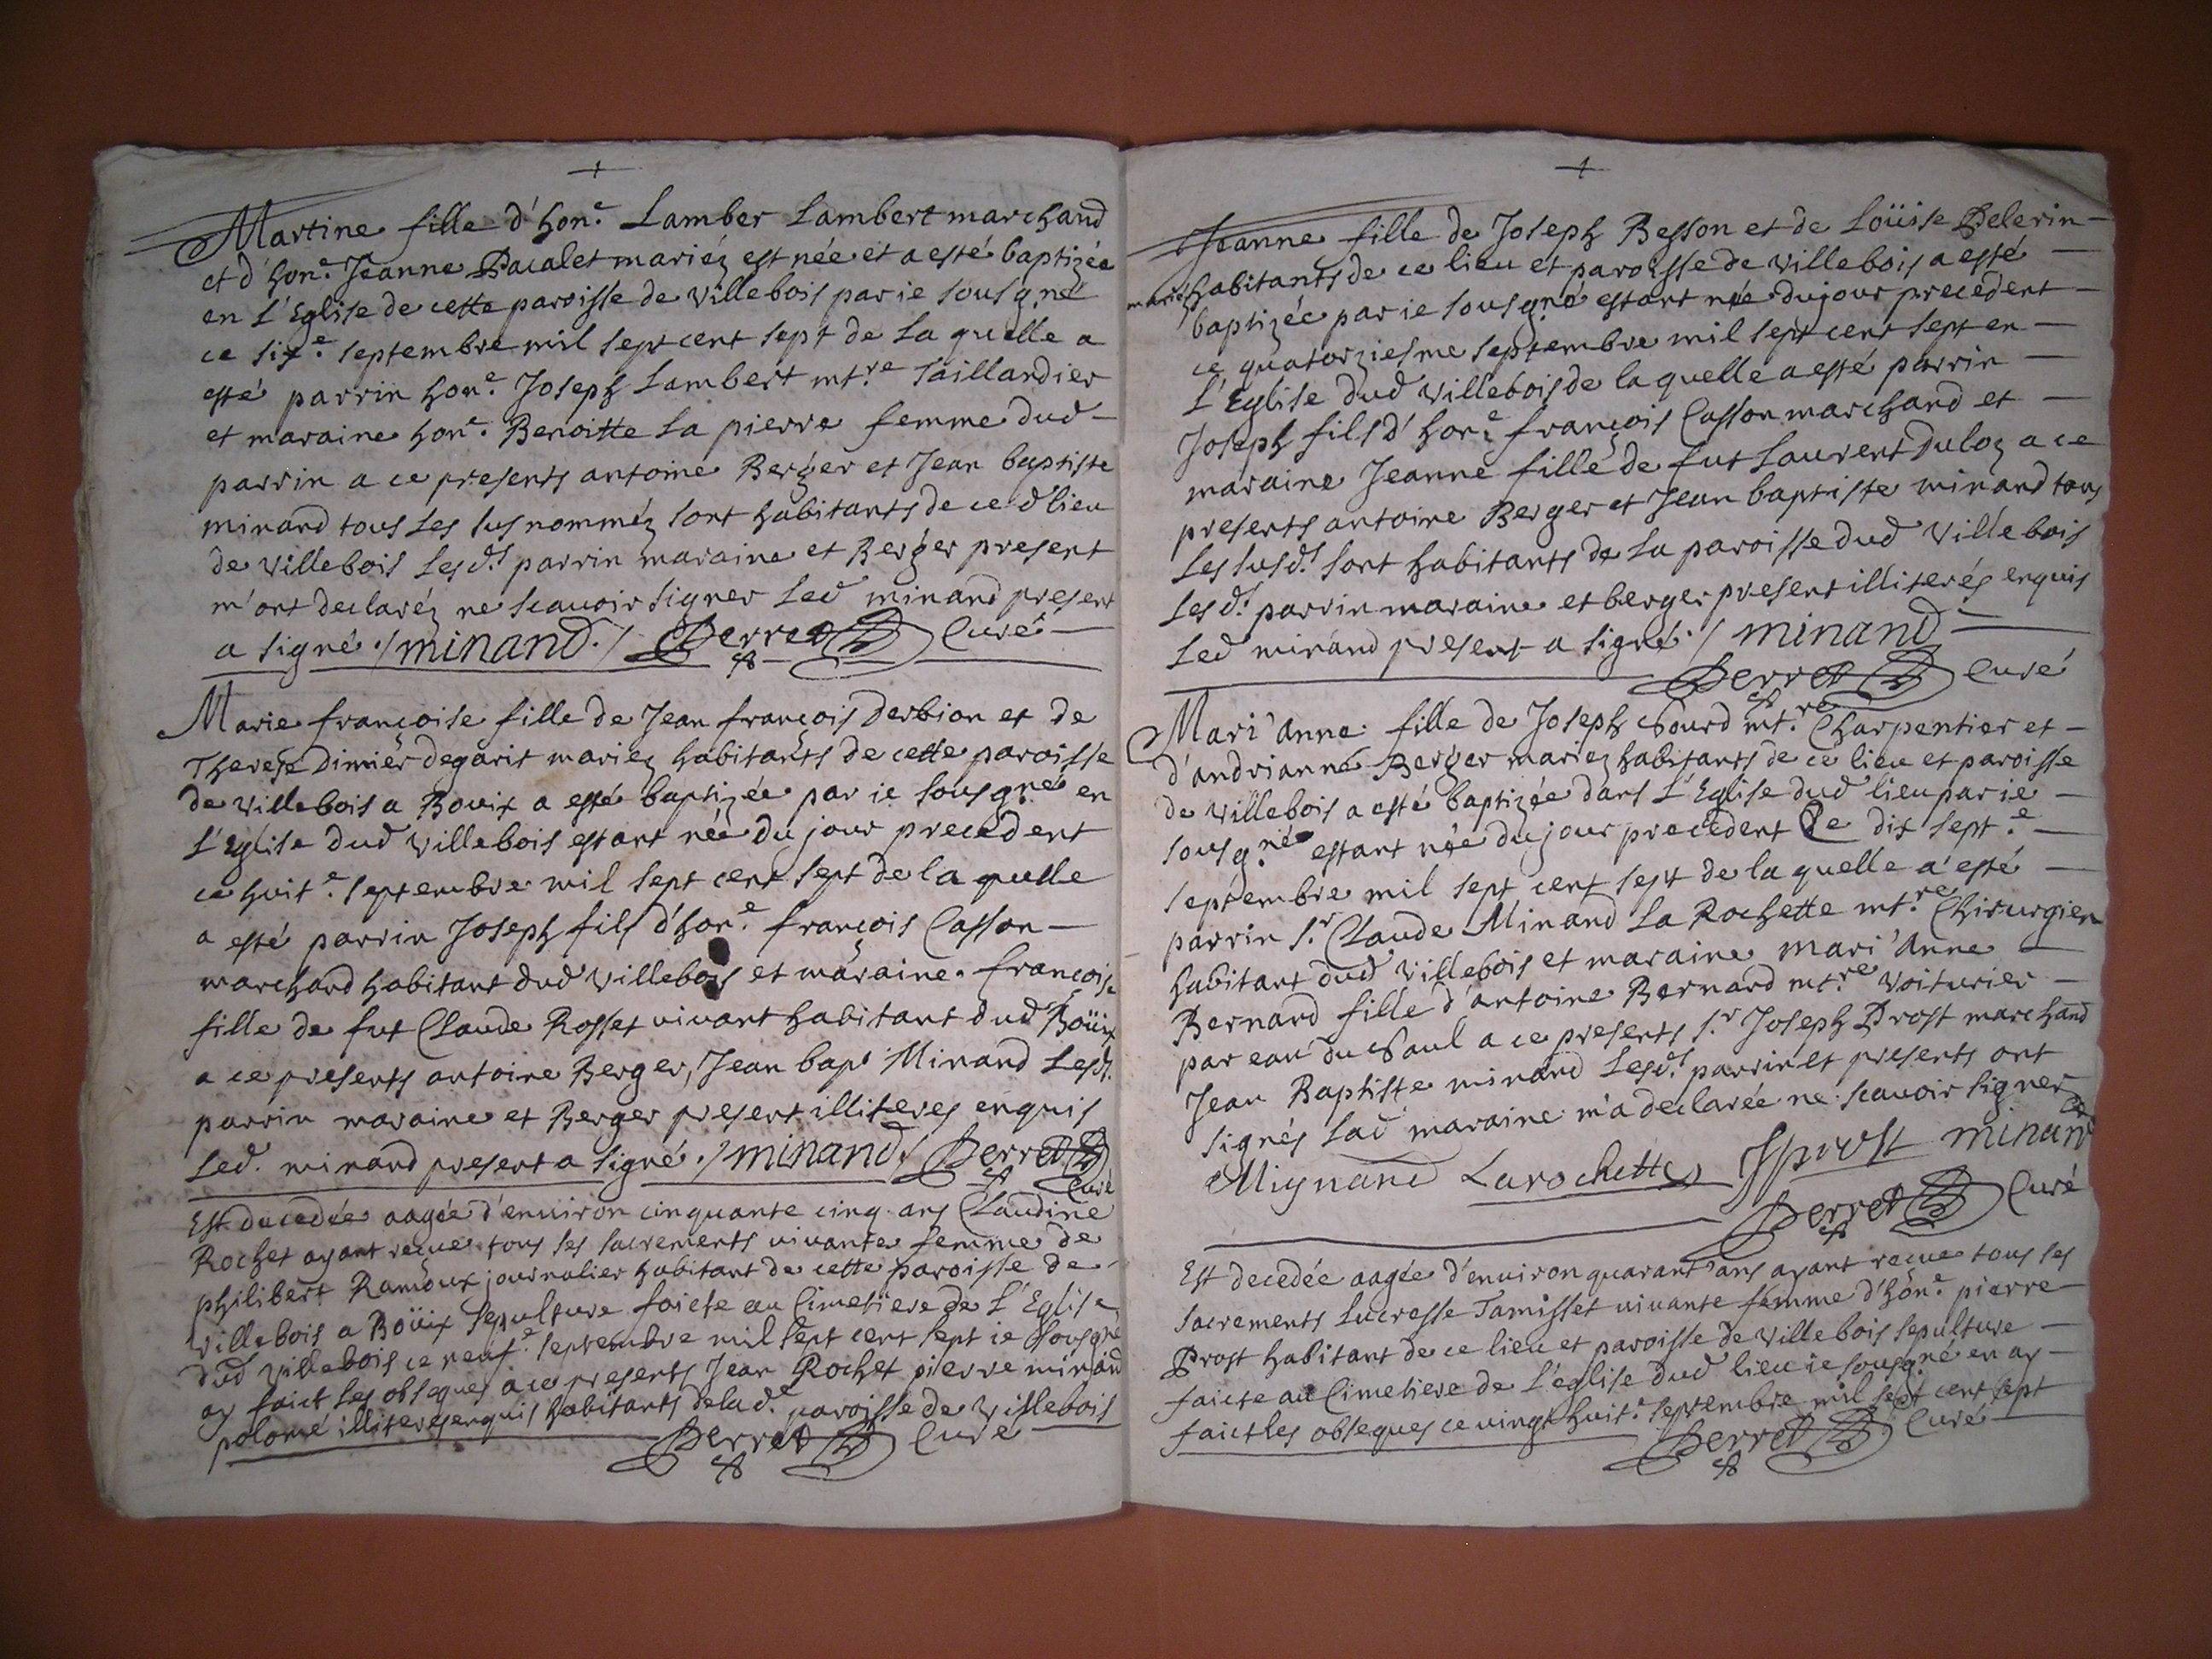 Martine fille d'hon.e Lamber Lambert marchand
et d'hon.e Jeanne Pacalet mariéz est née et a esté baptizée
en L'Eglise de cette paroisse de Villebois par ie sousg.né
ce six.e septembre mil sept cent sept de La quelle a
esté parrin hon.e Joseph Lambert mt.re Taillandier
et maraine hon.e Benoitte La pierre femme dud
parrin a ce presents antoine Berger et Jean baptiste
minand tous Les susnomméz sont habitants de ce d lieu
de Villebois Lesd.s parrin maraine et Berger present
m'ont declaréz ne scauoir signer Led minand present
a signé ./ minand ./ Perret Curé
Marie françoise fille de Jean françois derbion et de
Therese Dimier degarit mariez habitants de cette paroisse
de Villebois a Bouix a esté baptizée par ie sousg.né en
L'Eglise dud Villebois estant née du jour precedent
ce huit.e septembre mil sept cent sept de la quelle
a esté parrin Joseph fils d'hon.e françois Casson
marchand habitant dud Villebois et maraine françoise
fille de fut Claude Rosset uiuant habitant dud Boüix
a ce presents antoine Berger, Jean bap.t Minand Lesd.s
parrin maraine et Berger present illiteres enquis
Led. minand present a signé ./ minand ./ Perret
Curé
Est decedée aagée d'enuiron cinquante cinq ans Claudine
Rochet ayant reçue tous ses sacrements uiuante femme de
philibert Ramoux journalier habitant de cette paroisse de
Villebois a Boüix sepulture faicte au Cimetiere de L'Eglise
dud Villebois ce neuf.e septembre mil sept cent sept ie sousg.né
ay faict les obseques a ce presents Jean Rochet pierre minand
polomé illiteres enquis habitants de lad.e paroisse de Villebois
Perret Curé
Jeanne fille de Joseph Besson et de Loüise Pelerin
mariés habitants de ce lieu et paroisse de Villebois a esté
baptizée par ie sousg.né estant née du jour precedent
ce quatorziesme septembre mil sept cent sept en
L'Eglise dud Villebois de la quelle a esté parrin
Joseph fils d'hon.e françois Casson marchand et
maraine Jeanne fille de fut Laurent Duloz a ce
presents antoine Berger et Jean baptiste minand tous
Les susd.s sont habitants de La paroisse dud Villebois
Lesd.s parrin maraine et berger present illiterés enquis
Led minand present a signé ./ minand
Perret Curé
Mari'anne fille de Joseph Sourd mt.re Charpentier et
d'andrianne Berger mariez habitants de ce lieu et paroisse
de Villebois a esté baptizée dans L'Eglise dud lieu par ie
sousg.né estant née du jour precedent Ce dix sept.e
septembre mil sept cent sept de la quelle a esté
parrin s.r Claude Minand La Rochette mt.re Chirurgien
habitant dud Villebois et maraine Mari'anne
Bernard fille d'antoine Bernard mt.re Voiturier
par eau du Saul a ce presents s.r Joseph Prost marchand
Jean Baptiste minand Lesd.s parrin et presents ont
signés Lad maraine m'a declarée ne scauoir signer
Mignand Larochette Jprost minand
Perret Curé
Est decedée aagée d'enuiron quarant'ans ayant recue tous ses
sacrements Lucresse Tamisset uiuante femme d'hon.e pierre
Prost habitant de ce lieu et paroisse de Villebois sepulture
faicte au Cimetiere de l'eglise dud lieu ie sousg.né en ay
faict les obseques ce vingt huit.e septembre mil sept cent sept
Perret Curé